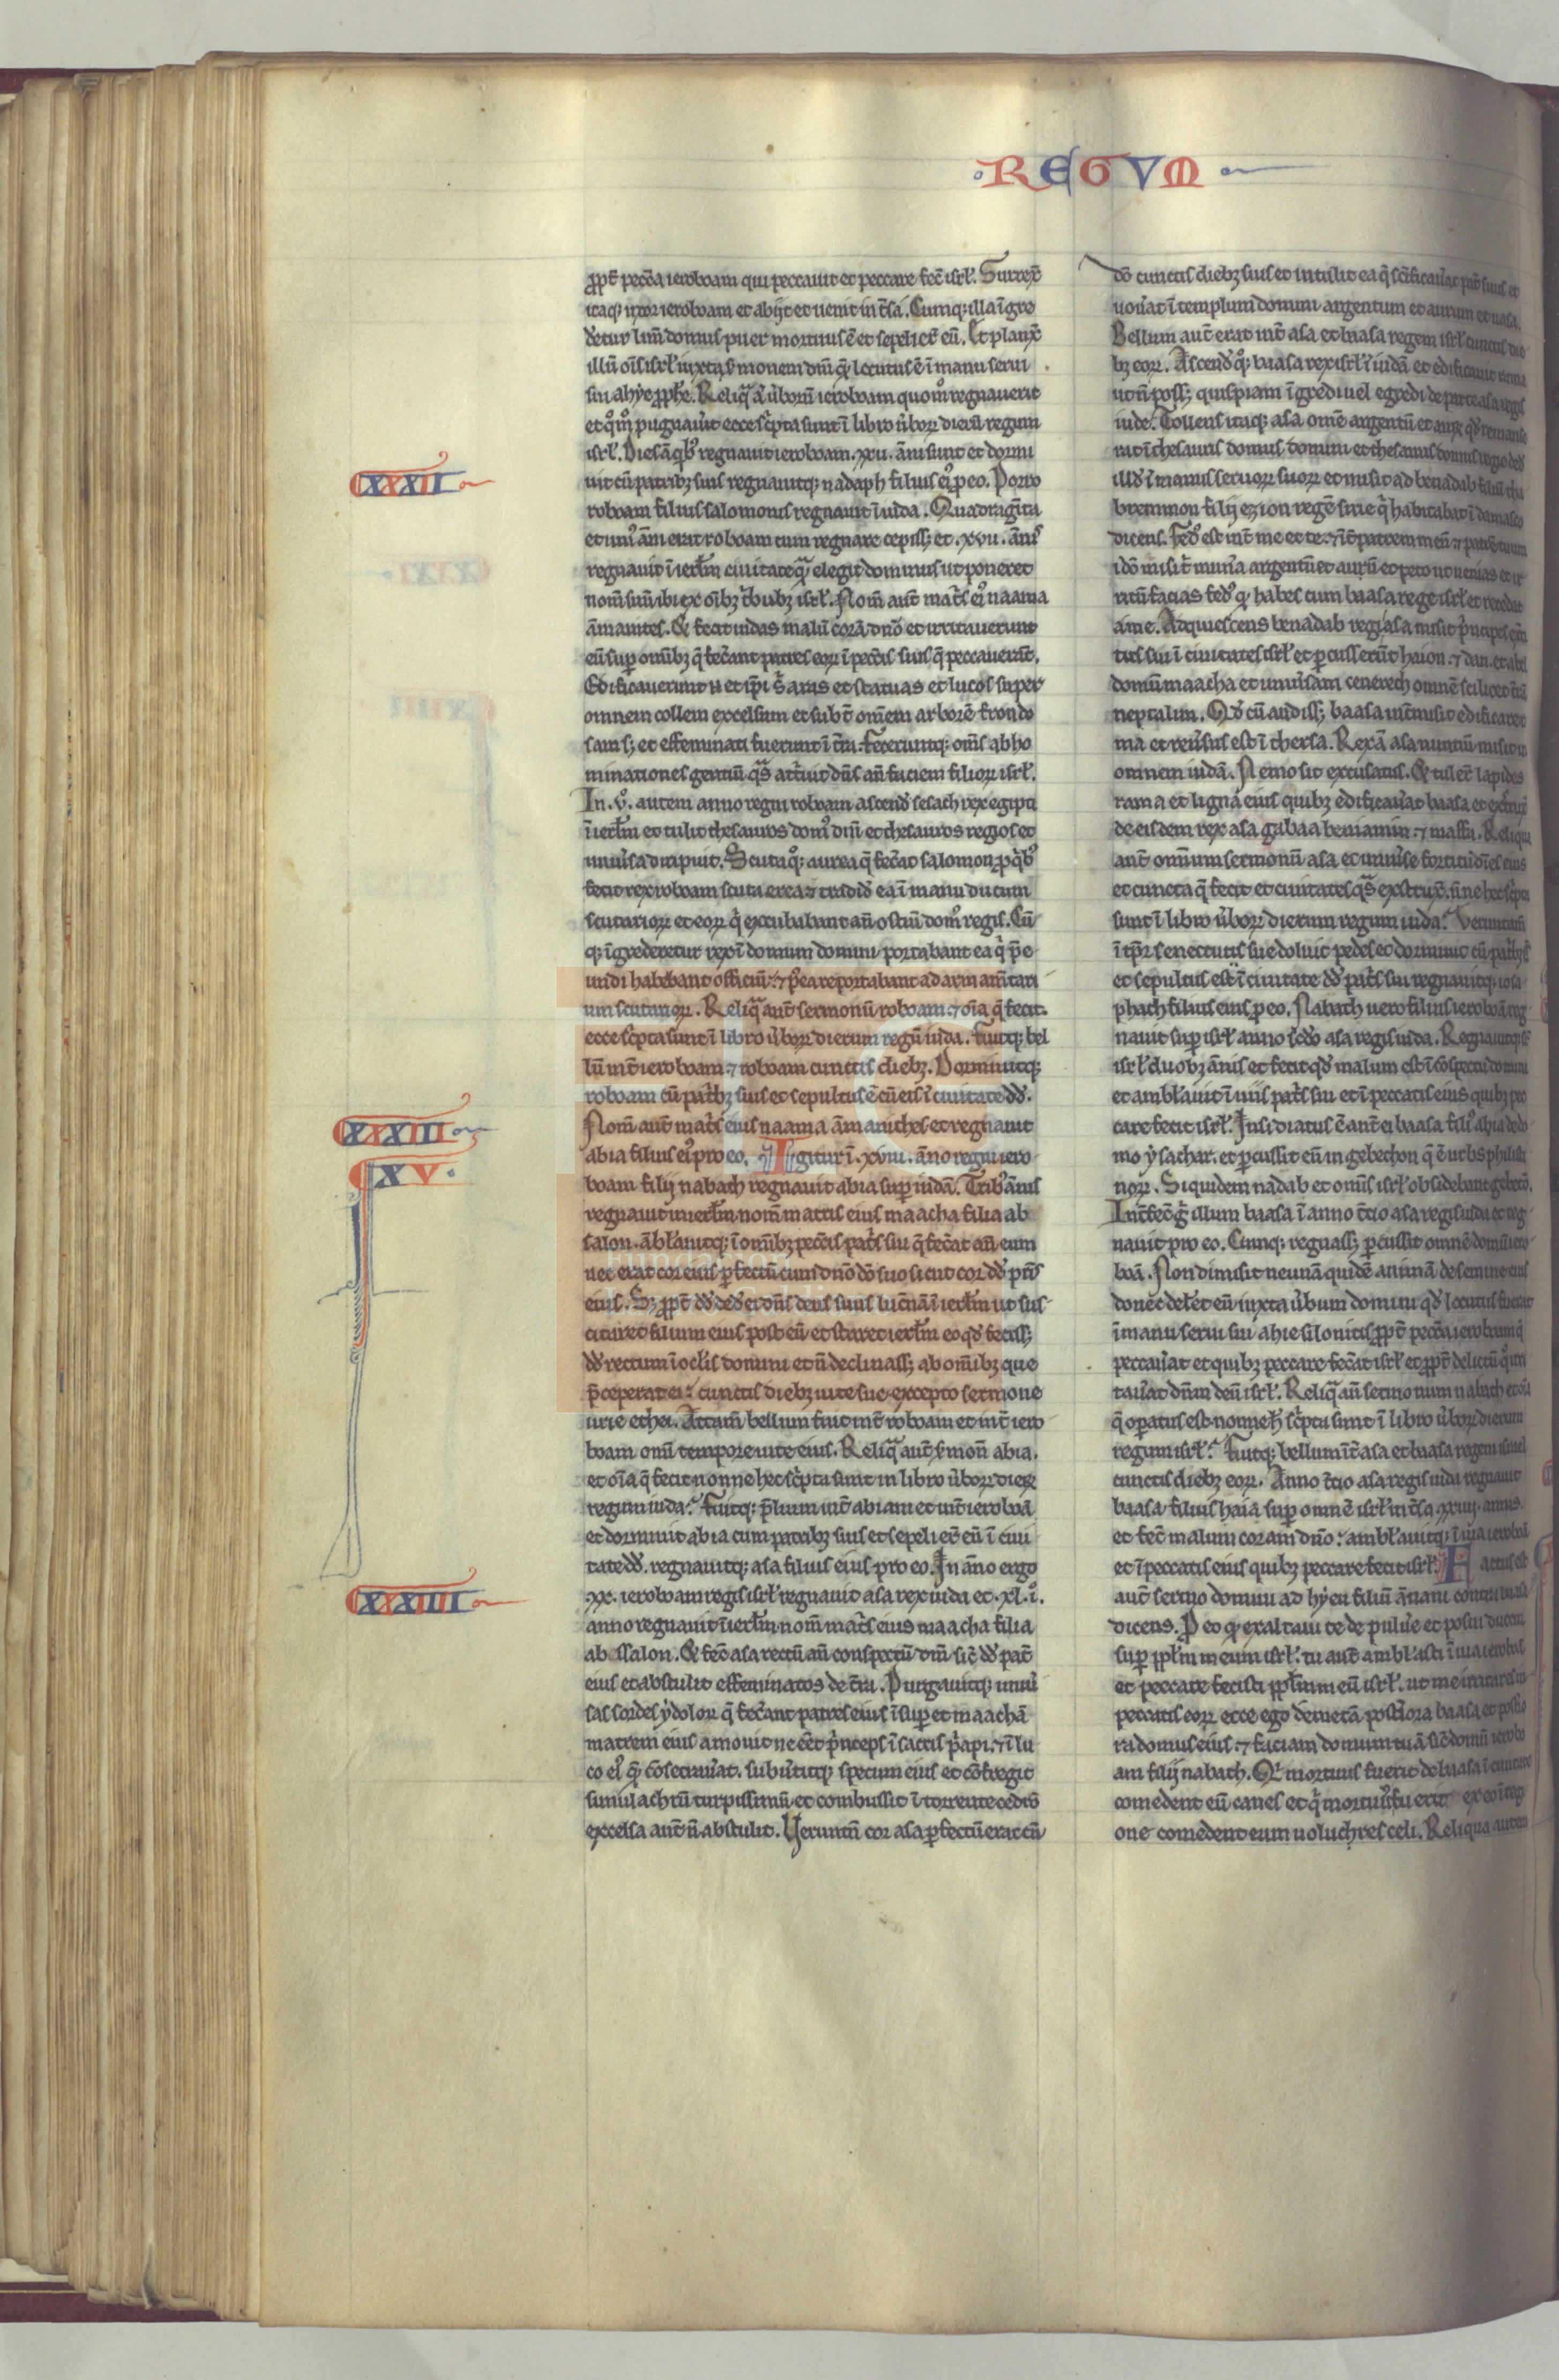 REGVM
ꝓpt̄ pecc̄a ieroboam qui peccauit et peccare fec̄ isrl̄. Surrex̄
itaqꝫ uxor ieroboam et abijt et uenit in t̄sa. Cumqꝫ illa īgre
deretur lim̄ domus puer mortuus ē et sepelier̄t eū. Et planx̄
illū oīs isrl̄ iuxta s̄monem dn̄i qͣ locutus ē ī manu serui
sui ahye ꝓph̄e. Reliqͣ aū u̓borū ieroboam quom̊ regnauerit
et qͦm̊ pugnau̓it ecce sc̓pta sunt ī libro u̓boꝝ dierū regum
isrl̄. Dies aū qͥbꝰ regnauit ieroboam .xxii. āni sunt et dormi
XXXII
uit cū patribꝫ suis regnauitqꝫ nadaph filius eiꝰ p̱ eo. Porro
roboam filius salomonis regnauit ī iuda. Quadraginta
et uniꝰ ām erat roboam cum regnare cepissꝫ et .xvii. ānis
regnauit ī ierl̄m ciuitate qͣm elegit dominus ut poneret
nom̄ suū ibi ex oībꝫ t̓bubꝫ isrl̄. Nom̄ aut̄ mat̓s eiꝰ naama
āmanites. Et fecit iudas malū corā dn̄o et irritauerunt
eū suꝑ omībꝫ q̄ fec̓ant patres eoꝝ ī pecc̄is suis q̄ peccauer̄t.
Edificauerunt n̄ et ip̄i s̓ aras et statuas et lucos super
omnem collem excelsum et subt̄ om̄em arborē frondo
sam sꝫ et effeminati fuerunt ī t̄ra. feceruntqꝫ om̄s abho
minationes gentiū qͣs att̓uit dn̄s an̄ faciem filioꝝ isrl̄.
In .v̊. autem anno regni roboam ascend̄ sesach rex egipti
ī ierl̄m et tulit thesauros domꝰ dn̄i et thesauros regios et
uniu̓sa diripuit. Scuta qͦꝫ aurea q̄ fec̓at salomon ꝓ qͥbꝰ
fecit rex roboam scuta erea ⁊ tradid̄ ea ī manu ducum
scutarioꝝ et eoꝝ qͥ excubabant an̄ ostiū domꝰ regis. Cū
qꝫ īgrederetur rex ī domum domini portabant ea qͥ p̄e
undi habebant officiū ⁊ p̄ea reportabant ad armam̄tari
um scutarioꝝ. Reliqͣ aut̄ sermonū roboam ⁊ oīa q̄ fecit
ecce sc̓pta sunt ī libro u̓boꝝ dierum regū iuda. fuitqꝫ bel
lū int̄ ieroboam ⁊ roboam cunctis diebꝫ. Dormiuitqꝫ
roboam cū pat̓bꝫ suis et sepultus ē cū eis ī ciuitate dd̄.
Nom̄ aut̄ mat̓s eius naama āmanithes et regnauit
XXXIII
abia filius eiꝰ pro eo. Igitur ī .xviii. āno regni iero
XV
boam filij nabath regnauit abia suꝑ iudā. Tribꝰ ānis
regnauit in ierl̄m nom̄ matris eius maacha filia ab
salon. āb̓lauitqꝫ ī om̄ibꝫ pecc̄is pat̓s sui q̄ fec̓at an̄ eum
nec erat cor eius ꝑfectū cum dn̄o dō suo sicut cor dd̄ pr̄is
eius. Sꝫ ꝓpt̄ dd̄ ded̄ ei dn̄s deus suus luc̓nā ī ierl̄m ut sus
citaret filium eius post eū et staret ierl̄m eo qd̄ fecissꝫ
dd̄ rectum ī oc̓lis domini et n̄ declinassꝫ ab om̄ibꝫ que
p̄ceperat ei cunctis diebꝫ uite sue excepto sermone
urie ethei. Attam̄ bellum fuit int̄ roboam et int̄ iero
boam omī tempore uite eius. Reliqͣ aut̄ s̓mon̄ abia.
et oīa q̄ fecit nonne hec sc̓pta sunt in libro u̓boꝝ dieꝝ
regum iuda? fuitqꝫ p̄lium int̄ abiam et int̄ ieroboā
et dormiuit abia cum patribꝫ suis et sepelier̄t eū ī ciui
tate dd̄. regnauitqꝫ asa filius eius pro eo. In āno ergo
XXXIIII
.xx. ieroboam regis isrl̄ regnauit asa rex iuda et .xl.i̊.
anno regnauit ī ierl̄m nom̄ mat̓s eius maacha filia
abssalon. Et fec̄ asa rectū an̄ conspectū dn̄i sic̄ dd̄ pat̄
eius et abstulit effeminatos de t̄ra. Purgauitqꝫ uniu̓
sas sordes ydoloꝝ q̄ fec̓ant patres eius īsuꝑ et maachā
matrem eius amouit ne eēt p̓nceps ī sacris p̓api ⁊ ī lu
co eiꝰ qͣm cōsecrau̓at. subu̓titqꝫ specum eius et cōfregit
simulachrū turpissimū et combussit ī torrente cedrō
excelsa aut̄ n̄ abstulit. Uerumt̄n cor asa ꝑfectū erat cū
dō cunctis diebꝫ suis et intulit ea q̄ sc̄ificau̓at pat̄ suus et
uou̓at ī templum domini argentum et aurum et uasa.
Bellum aut̄ erat int̄ asa et baasa regem isrl̄ cunctis die
bꝫ eoꝝ. Ascend̄ qͦꝫ baasa rex isrl̄ ī iudā et edificauit rama
ut n̄ possꝫ quispiam īgredi uel egredi de parte asa regis
iude. Tollens itaqꝫ asa om̄e argentū et auꝝ qd̄ remanse
rat ī thesauris domus domini et thesauris domus regie ded̄
illd̄ ī manus seruoꝝ suoꝝ et misit ad benadab filiū tha
bremmon filij ezion regē sirie qͥ habitabat ī damasco
dicens. Fedꝰ est int̄ me et te ⁊ īt̄ patrem meū ⁊ patrē tuum
idō misi t̄ mun̓a argentū et aurū et peto ut uenias et ir
ritū facias fedꝰ qͦ habes cum baasa rege isrl̄ et recedat
a me. Adquiescens benadab regi asa misit p̓ncipes ex̓ci
tus sui ī ciuitates isrl̄ et ꝑcusserūt haion ⁊ dan et abel
domū maacha et uniu̓sam cenerech omnē scilicet t̄rā
neptalim. Qd̄ cū audissꝫ baasa int̄misit edificare ra
ma et reu̓sus est ī thersa. Rex ā asa nuntiū misit in
omnem iudā. Nemo sit excusatus. Et tuler̄t lapides
rama et ligna eius quibꝫ edificau̓at baasa et ext̓uxit
de eisdem rex asa gabaa beniamin ⁊ maffa. Reliqua
aut̄ omnium sermonū asa et uniu̓se fortitudīes eius
et cuncta q̄ fecit et ciuitates qͣs exstrux̄. n̄ne hec sc̓pta
sunt ī libro u̓boꝝ dierum regum iuda? Verumtam̄
ī tp̄r senectutis sue doluit pedes et dormiuit cū pat̓bꝫ s̄
et sepultus est ī ciuitate dd̄ pat̓s sui regnauitqꝫ iosa
phath filius eius p̱ eo. Nabath uero filius ieroboā reg
nauit suꝑ isrl̄ anno sc̄do asa regis iuda. Regnauitqꝫ sꝑ
isrl̄ duobꝫ ānis et fecit qd̄ malum est ī cōspectu domini
et ambl̄auit ī uiis pat̓s sui et ī peccatis eius quibꝫ pec
care fecit isrl̄. Insidiatus ē aut̄ ei baasa filiꝰ ahia de do
mo ysachar. et ꝑcussit eū in gebethon q̄ ē urbs philisti
noꝝ. Siquidem nadab et om̄is isrl̄ obsidebant gebetō.
Int̄fec̄ gͦ illum baasa ī anno t̄cio asa regis iuda et reg
nauit pro eo. Cumqꝫ regnassꝫ ꝑcussit omnē domū iero
boā. Non dimisit ne unā quidē animā de semine eius
donec delet̄ eū iuxta u̓bum domini qd̄ locutus fuerat
ī manu serui sui ahie silonitis ꝓpt̄ pecc̄a ieroboam q̄
peccau̓at et quibꝫ peccare fec̓at isrl̄ et ꝓpt̄ delictū qͦ irri
tau̓at dn̄m deū isrl̄. Reliqͣ aū sermonum nabath et oīa
q̄ oꝑatus est nonne h̄ sc̓pta sunt ī libro u̓boꝝ dierum
regum isrl̄? fuitqꝫ bellum īt̄ asa et baasa regem israel
cunctis diebꝫ eoꝝ. Anno t̄cio asa regis iuda regnauit
baasa filius haia suꝑ omnē isrl̄ in t̄sa .xxiiii. annis.
et fec̄ malum coram dn̄o. ambl̄auitqꝫ ī uia ieroboā
et ī peccatis eius quibꝫ peccare fecit isrl̄. Factus est
aut̄ sermo domini ad hyeu filiū ānani contra baasa
dicens. P̱ eo qͦ exaltaui te de pulu̓e et posui ducem
suꝑ ppl̄m meum isrl̄. tu aut̄ ambl̄asti ī uia ieroboā
et peccare fecisti ppl̄m meū isrl̄. ut me irritares in
peccatis eoꝝ ecce ego demetā post̓iora baasa et post̓io
ra domus eius ⁊ faciam domum tuā sic̄ domū ierobo
am filij nabath. Qͥ mortuus fuerit de baasa ī ciuitate
comedent eū canes et qͥ mortuꝰ fuerit ex eo ī regi
one comedent eum uoluchres celi. Reliqua autem